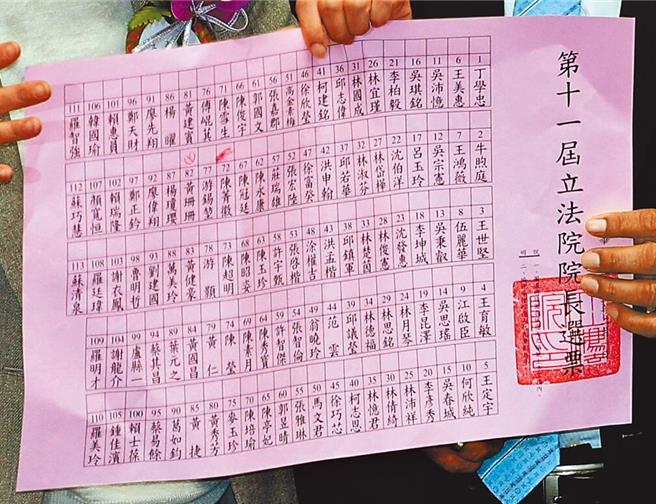 第十一屆立法院院長選票
1 丁學忠
2 牛煦庭
3 王世堅
4 王育敏
5 王定宇
6 王美惠
7 王鴻薇
8 伍麗華
9 江啟臣
10 何欣純
11 吳沛憶
12 吳宗憲
13 吳秉叡
14 吳思瑤
15 吳春城
16 吳琪銘
17 呂玉玲
18 李坤城
19 李昆澤
20 李彥秀
21 李柏毅
22 沈伯洋
23 沈發惠
24 林月琴
25 林沛祥
26 林宜瑾
27 林岱樺
28 林俊憲
29 林思銘
30 林倩綺
31 林國成
32 林淑芬
33 林楚茵
34 林德福
35 林憶君
36 邱志偉
37 邱若華
38 邱鎮軍
39 邱議瑩
40 柯志恩
41 柯建銘
42 洪申翰
43 洪孟楷
44 范雲
45 徐巧芯
46 徐欣瑩
47 徐富癸
48 涂權吉
49 翁曉玲
50 馬文君
51 高金素梅
52 張宏陸
53 張啓楷
54 張智倫
55 張雅琳
56 張嘉郡
57 莊瑞雄
58 許宇甄
59 許智傑
60 郭昱晴
61 郭國文
62 陳永康
63 陳玉珍
64 陳秀寳
65 陳亭妃
66 陳俊宇
67 陳冠廷
68 陳昭姿
69 陳素月
70 陳培瑜
71 陳雪生
72 陳菁徽
73 陳超明
74 陳瑩
75 麥玉珍
76 傅崐萁
77 游錫堃
78 游顥
79 黃仁
80 黃秀芳
81 黃建賓
82 黃珊珊
83 黃健豪
84 黃國昌
85 黃捷
86 楊曜
87 楊瓊瓔
88 萬美玲
89 葉元之
90 葛如鈞
91 廖先翔
92 廖偉翔
93 劉建國
94 蔡其昌
95 蔡易餘
96 鄭天財
97 鄭正鈐
98 魯明哲
99 盧縣一
100 賴士葆
101 賴惠員
102 賴瑞隆
103 謝衣鳳
104 謝龍介
105 鍾佳濱
106 韓國瑜
107 顏寬恒
108 羅廷瑋
109 羅明才
110 羅美玲
111 羅智強
112 蘇巧慧
113 蘇清泉